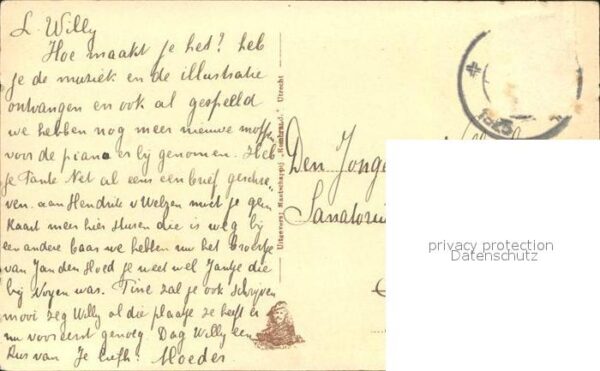 L. Willy
Hoe maakt je het? heb
je de muziek en de illustratie
ontvangen en ook al gespeeld
we hebben nog meer nieuwe
voor de piano er bij genomen. Heb
je Tante Net al eens een brief geschre
ven. aan Hendrik v Welzen moet je geen
Kaart meer hier sturen die is weg bij
een andere baas we hebben nu het broertje
van Jan den Hoed je weet wel Jantje die
bij was. Tine zal je ook schrijven
mooi zeg Willy al die plaatje ze heeft er
nu voor eerst genoeg. Dag Willy een
Kus van Je liefh: Moeder
Uitgevers Maatschappij „Rembrandt" Utrecht
Den Jonge
Sanatoriu
privacy protection
Datenschutz